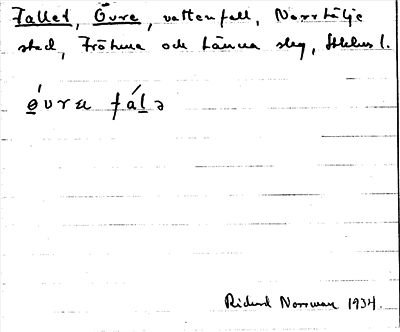 Fallet, Övre, vattenfall, Norrtälje
stad, Fröhuna och Länna slg, Sthlms l.
ǿvrɛ fálə
Rickard Norrman 1934.